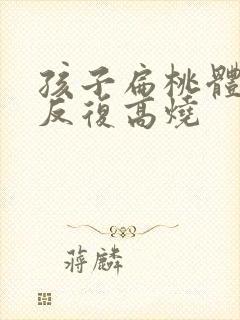 孩子扁桃體
反復高燒
蔣麟